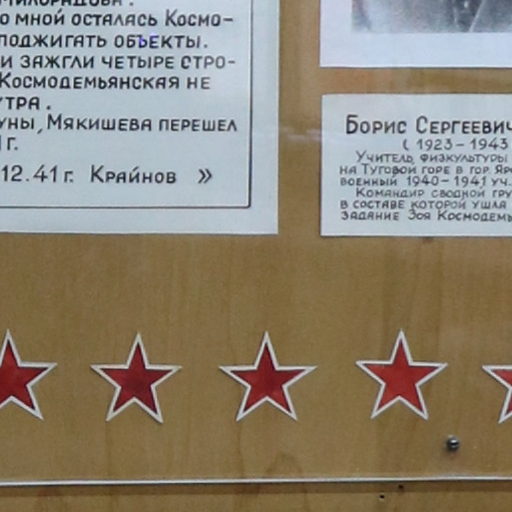 О МНОЙ ОСТАЛАСЬ КОСМО-
ПОДЖИГАТЬ ОБЪЕКТЫ.
И ЗАЖГЛИ ЧЕТЫРЕ СТРО-
КОСМОДЕМЬЯНСКАЯ НЕ
УТРА.
УНЫ, МЯКИШЕВА ПЕРЕШЕЛ
Г.
12.41 г. КРАЙНОВ »
БОРИС СЕРГЕЕВИЧ
( 1923 – 1943
УЧИТЕЛЬ ФИЗКУЛЬТУРЫ
НА ТУГОВОЙ ГОРЕ В ГОР. ЯРО
ВОЕННЫЙ 1940 – 1941 УЧ.
КОМАНДИР СВОДНОЙ ГРУ
В СОСТАВЕ КОТОРОЙ УШЛА
ЗАДАНИЕ ЗОЯ КОСМОДЕМЬ